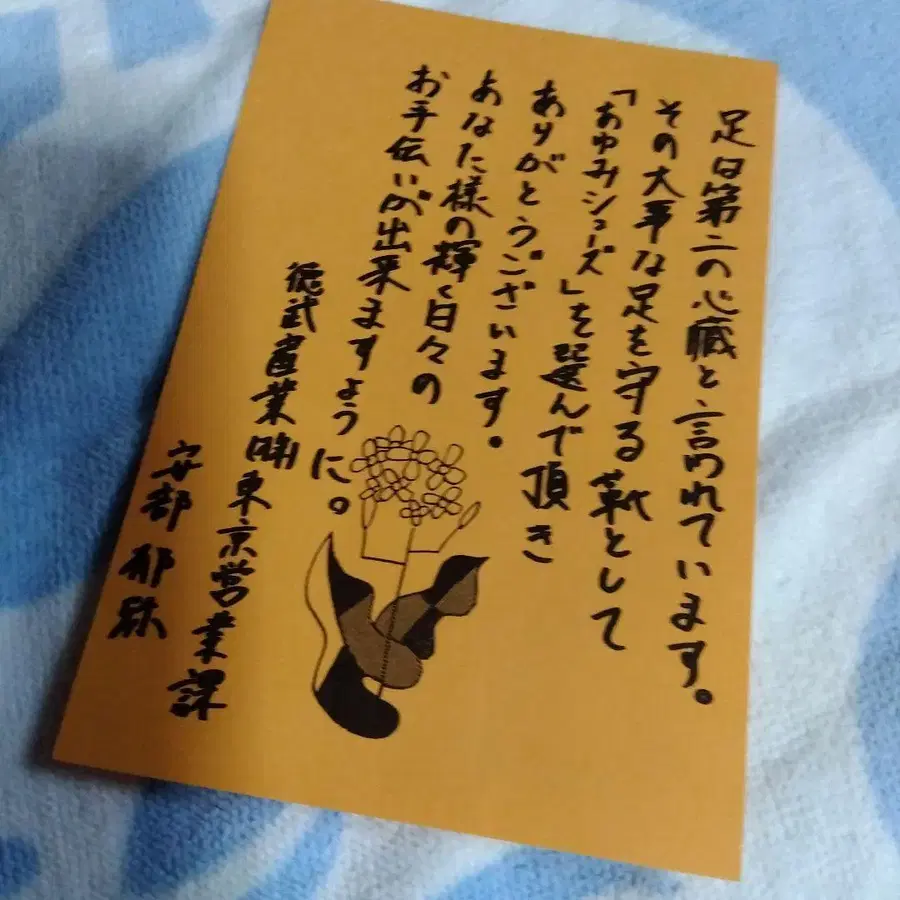 足は第二の心臓と言われています。
その大事な足を守る靴として
「あゆみシューズ」を選んで頂き
ありがとうございます。
あなた様の輝く日々の
お手伝いが出来ますように。
徳武産業㈱東京営業課
安部 郁弥